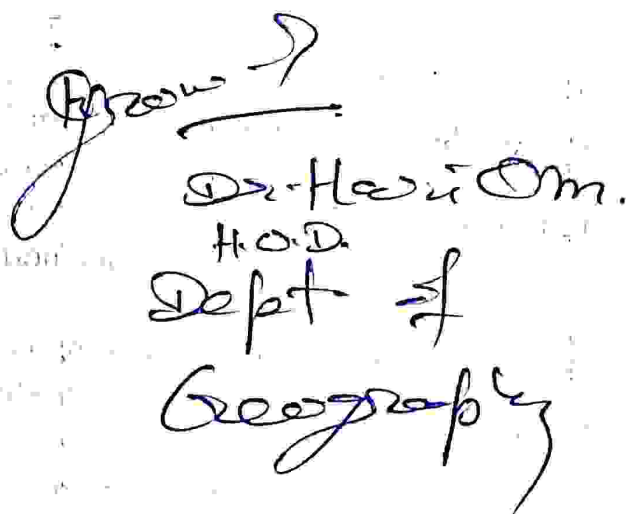 From →
Dr. Hari Om.
H.O.D.
Dept of
Geography